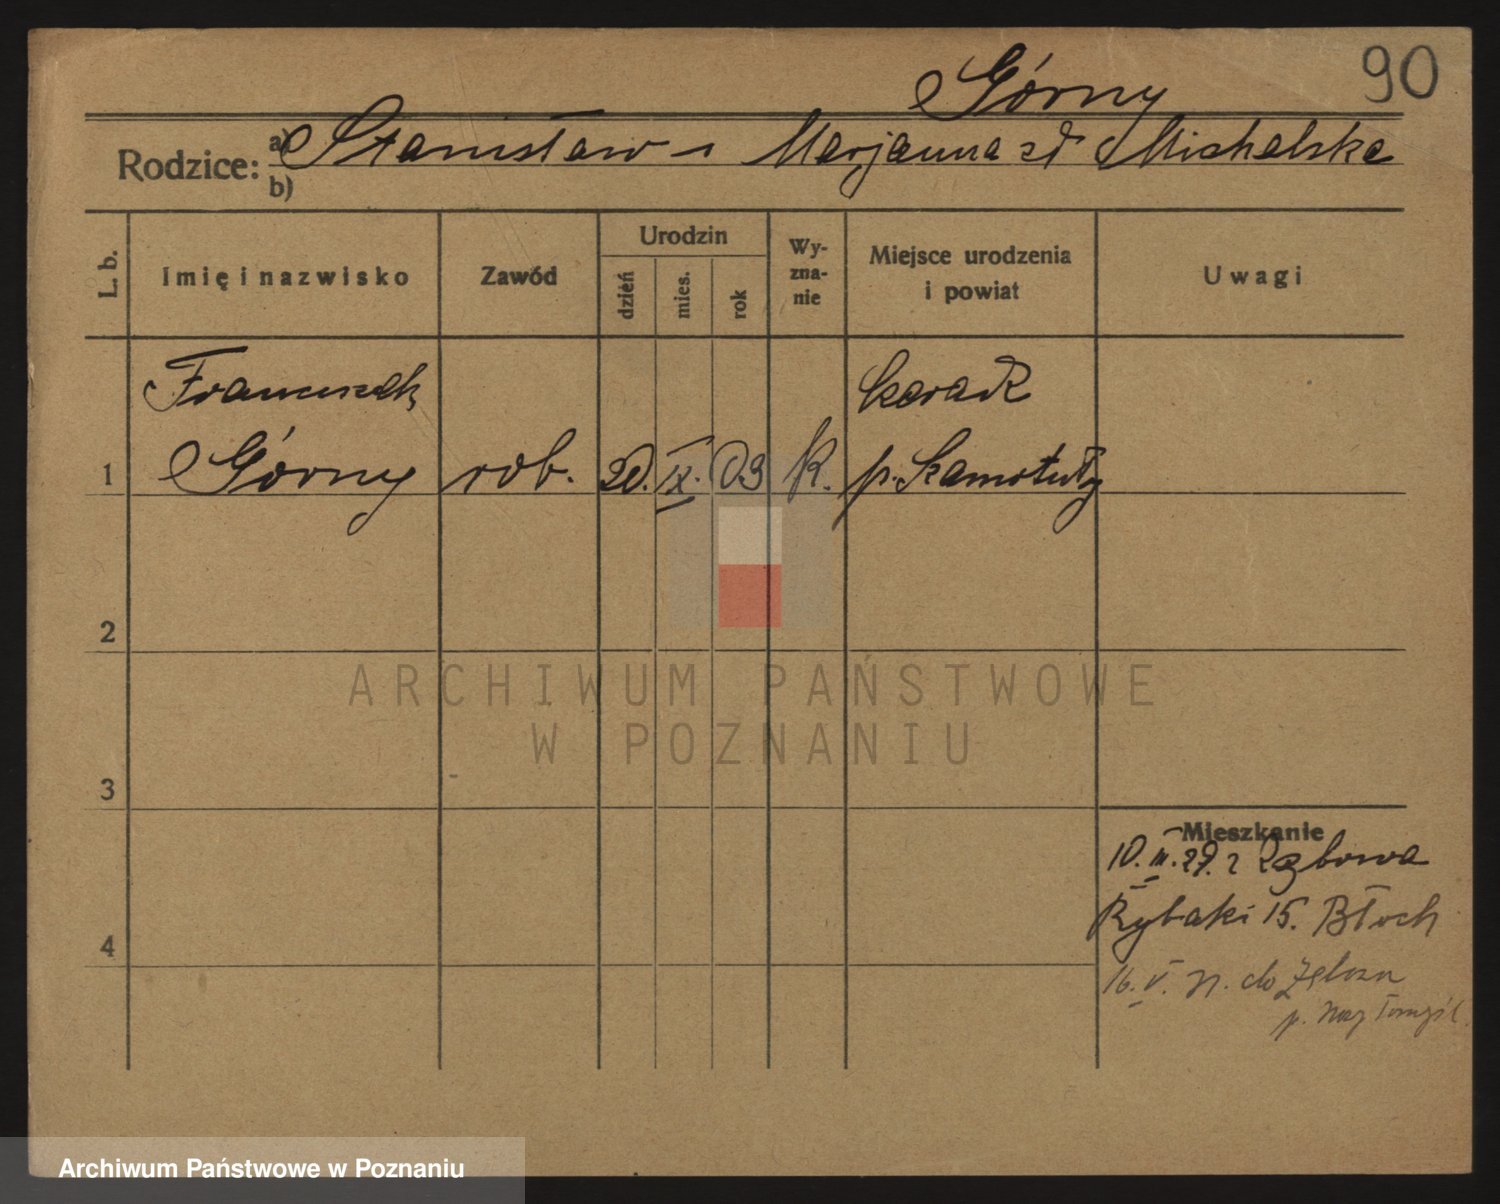 Górny 90
Rodzice: a) Stanisław i Marjanna zd Michalska
b)
L. b. Imię i nazwisko Zawód Urodzin dzień mies. rok Wy-zna-nie Miejsce urodzenia i powiat Uwagi
Franciszek
1 Górny rob. 20. IX. 09 k. p. Szamotuły
2
ARCHIWUM PAŃSTWOWE
W POZNANIU
3
Mieszkanie
10. III. 27. z
Rybaki 15. Błoch
4
16. V. n. do
p. Tomyśl
Archiwum Państwowe w Poznaniu